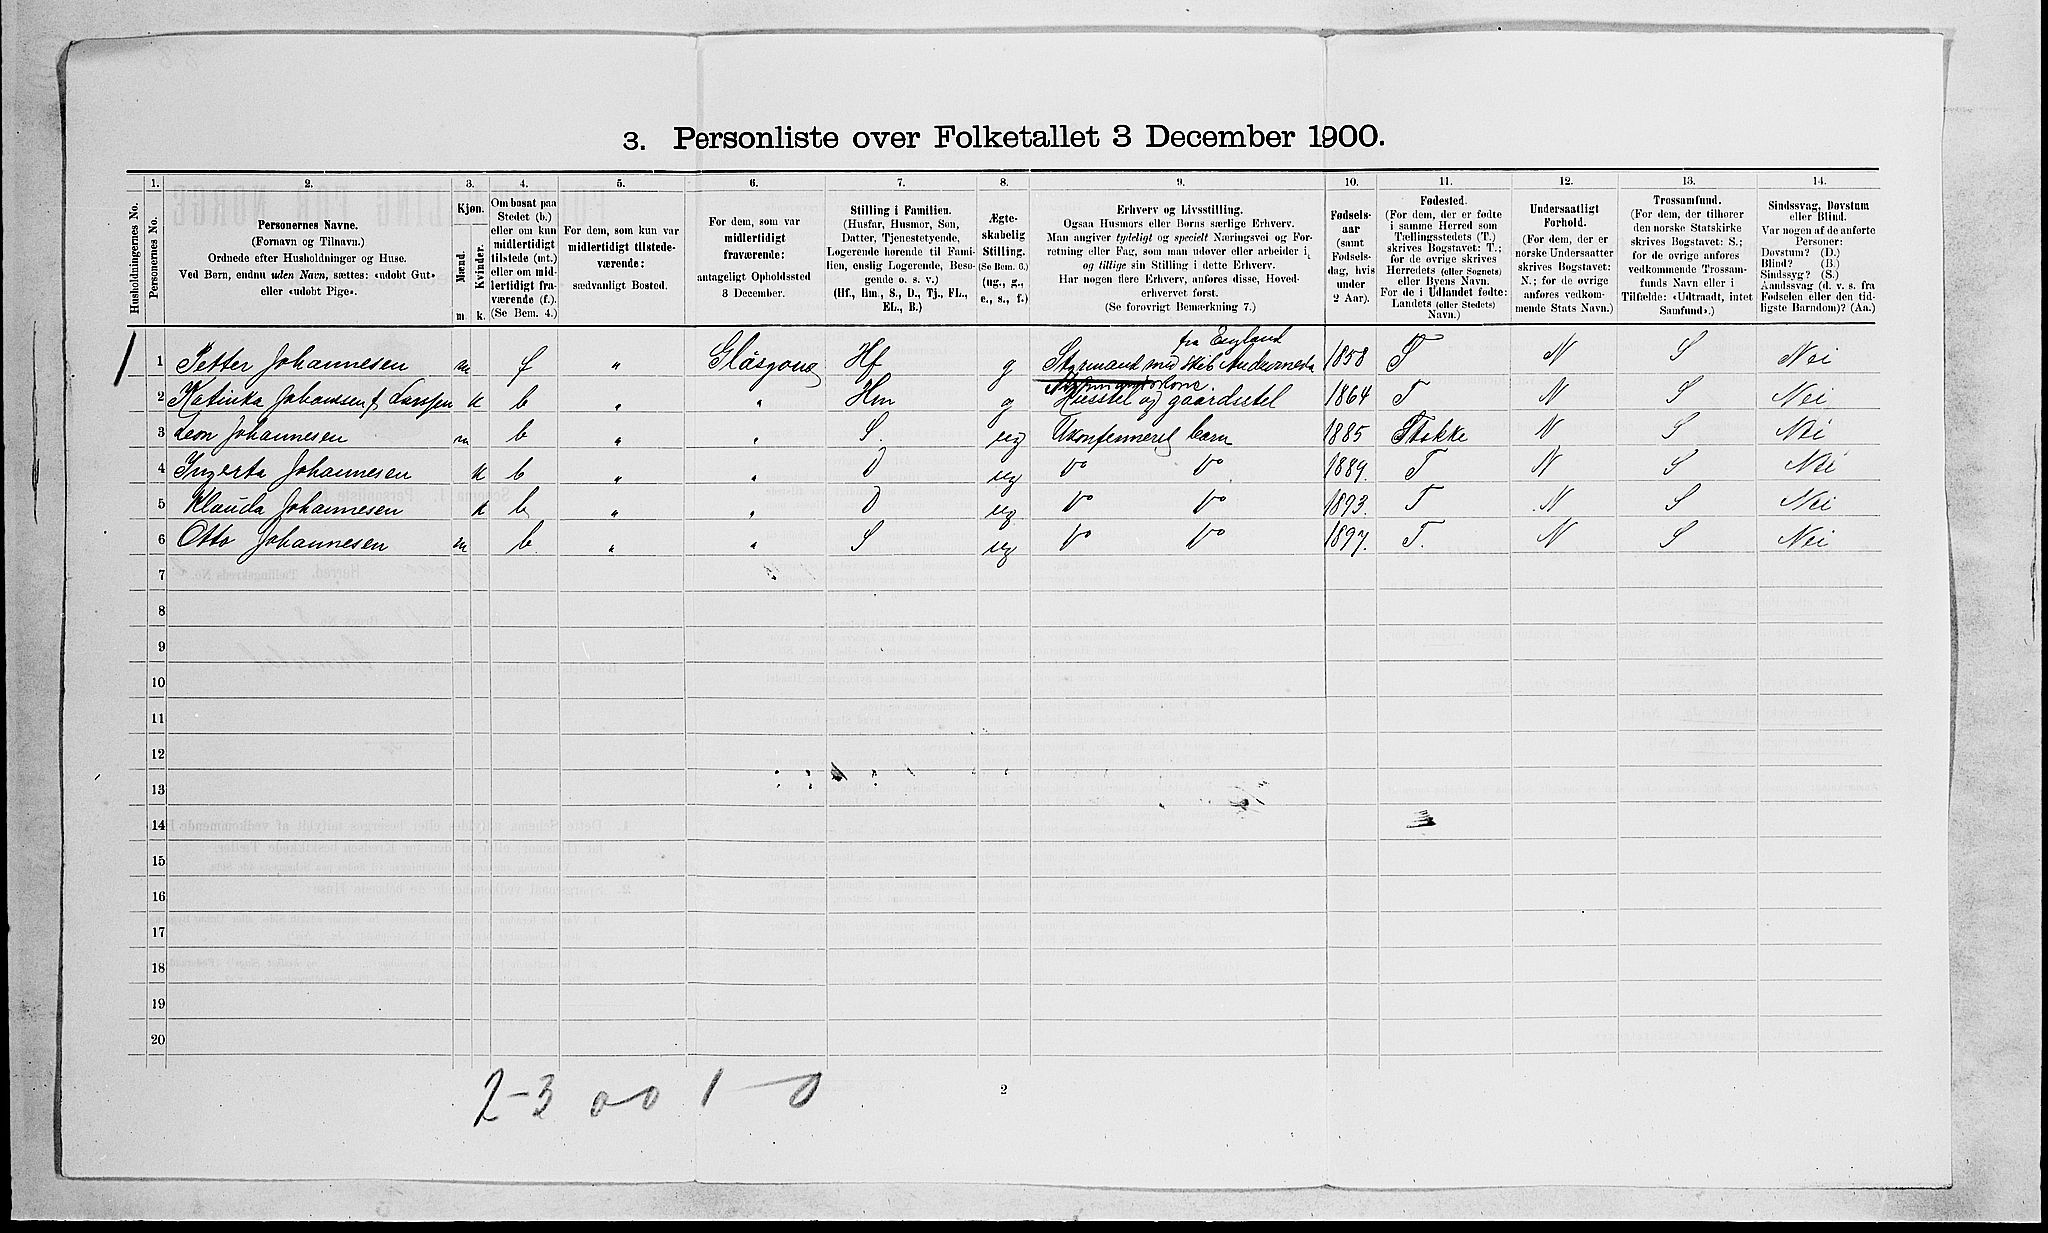 3. Personliste over Folketallet 3 December 1900.
1. 2. 3. 4. 5. 6. 7. 8. 9. 10. 11. 12. 13. 14.
Husholdningernes No.
Personernes No.
Personernes Navne.
(Fornavn og Tilnavn.)
Ordnede efter Husholdninger og Huse.
Ved Børn, endnu uden Navn, sættes: «udobt Gut»
eller «udobt Pige».
Kjøn.
Mænd.
Kvinder.
m. k.
Om bosat paa
Stedet (b.)
eller om kun
midlertidigt
tilstede (mt.)
eller om mid-
lertidigt fra-
værende (f.).
(Se Bem. 4.)
For dem, som kun var
midlertidigt tilstede-
værende:
sædvanligt Bosted.
For dem, som var
midlertidigt
fraværende:
antageligt Opholdssted
3 December.
Stilling i Familien.
(Husfar, Husmor, Søn,
Datter, Tjenestetyende,
Logerende hørende til Fami-
lien, enslig Logerende, Besø-
gende o. s. v.)
(Hf., Hm., S., D., Tj., FL.,
EL., B.)
Ægte-
skabelig
Stilling.
(Se Bem. 6.)
(ug., g.,
e., s., f.)
Erhverv og Livsstilling.
Ogsaa Husmors eller Børns særlige Erhverv.
Man angiver tydeligt og specielt Næringsvei og For-
retning eller Fag, som man udøver eller arbeider i,
og tillige sin Stilling i dette Erhverv.
Har nogen flere Erhverv, anføres disse, Hoved-
erhvervet først.
(Se forøvrigt Bemærkning 7.)
Fødsels-
aar
(samt
Fødsels-
dag, hvis
under
2 Aar).
Fødested.
(For dem, der er fødte
i samme Herred som
Tællingsstedets (T.)
skrives Bogstavet: T.;
for de øvrige skrives
Herredets (eller Sognets)
eller Byens Navn.
For de i Udlandet fødte:
Landets (eller Stedets)
Navn.)
Undersaatligt
Forhold.
(For dem, der er
norske Undersaatter
skrives Bogstavet:
N.; for de øvrige
anføres vedkom-
mende Stats Navn.)
Trossamfund.
(For dem, der tilhører
den norske Statskirke
skrives Bogstavet: S.;
for de øvrige anføres
vedkommende Trossam-
funds Navn eller i
Tilfælde: «Udtraadt, intet
Samfund».)
Sindssvag, Døvstum
eller Blind.
Var nogen af de anførte
Personer:
Døvstum? (D.)
Blind? (B.)
Sindssyg? (S.)
Aandssvag (d. v. s. fra
Fødselen eller den tid-
ligste Barndom)? (Aa.)
fra England
1 1 Petter Johannesen m f " Glåsgow Hf g Styrmand med skib Andromeda 1858 T N S Nei
Styrmandskone.
2 Katinka Johansen f. Larssen k b " " Hm g Husstel og gaardsstel 1864 T N S Nei
3 Leon Johannesen m b " " S. ug Ukonfermeret barn 1885 Stokke N S Nei
4 Ingerta Johannesen k b " " D ug Do Do 1889. T N S Nei
5 Klauda Johannesen k b " " D ug Do Do 1893. T N S Nei
6 Otto Johannesen m b " " S ug Do Do 1897. T. N S Nei
7
8
9
10
11
12
13
14
15
16
17
18
19
20
2-3 0 0 1 - 0
2